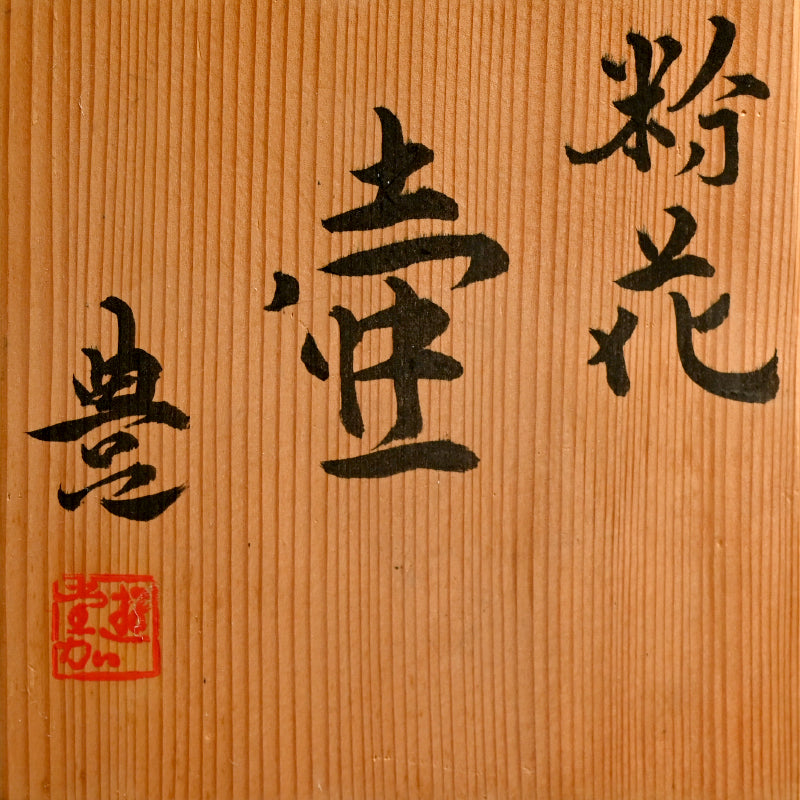 粉花
壷
豊